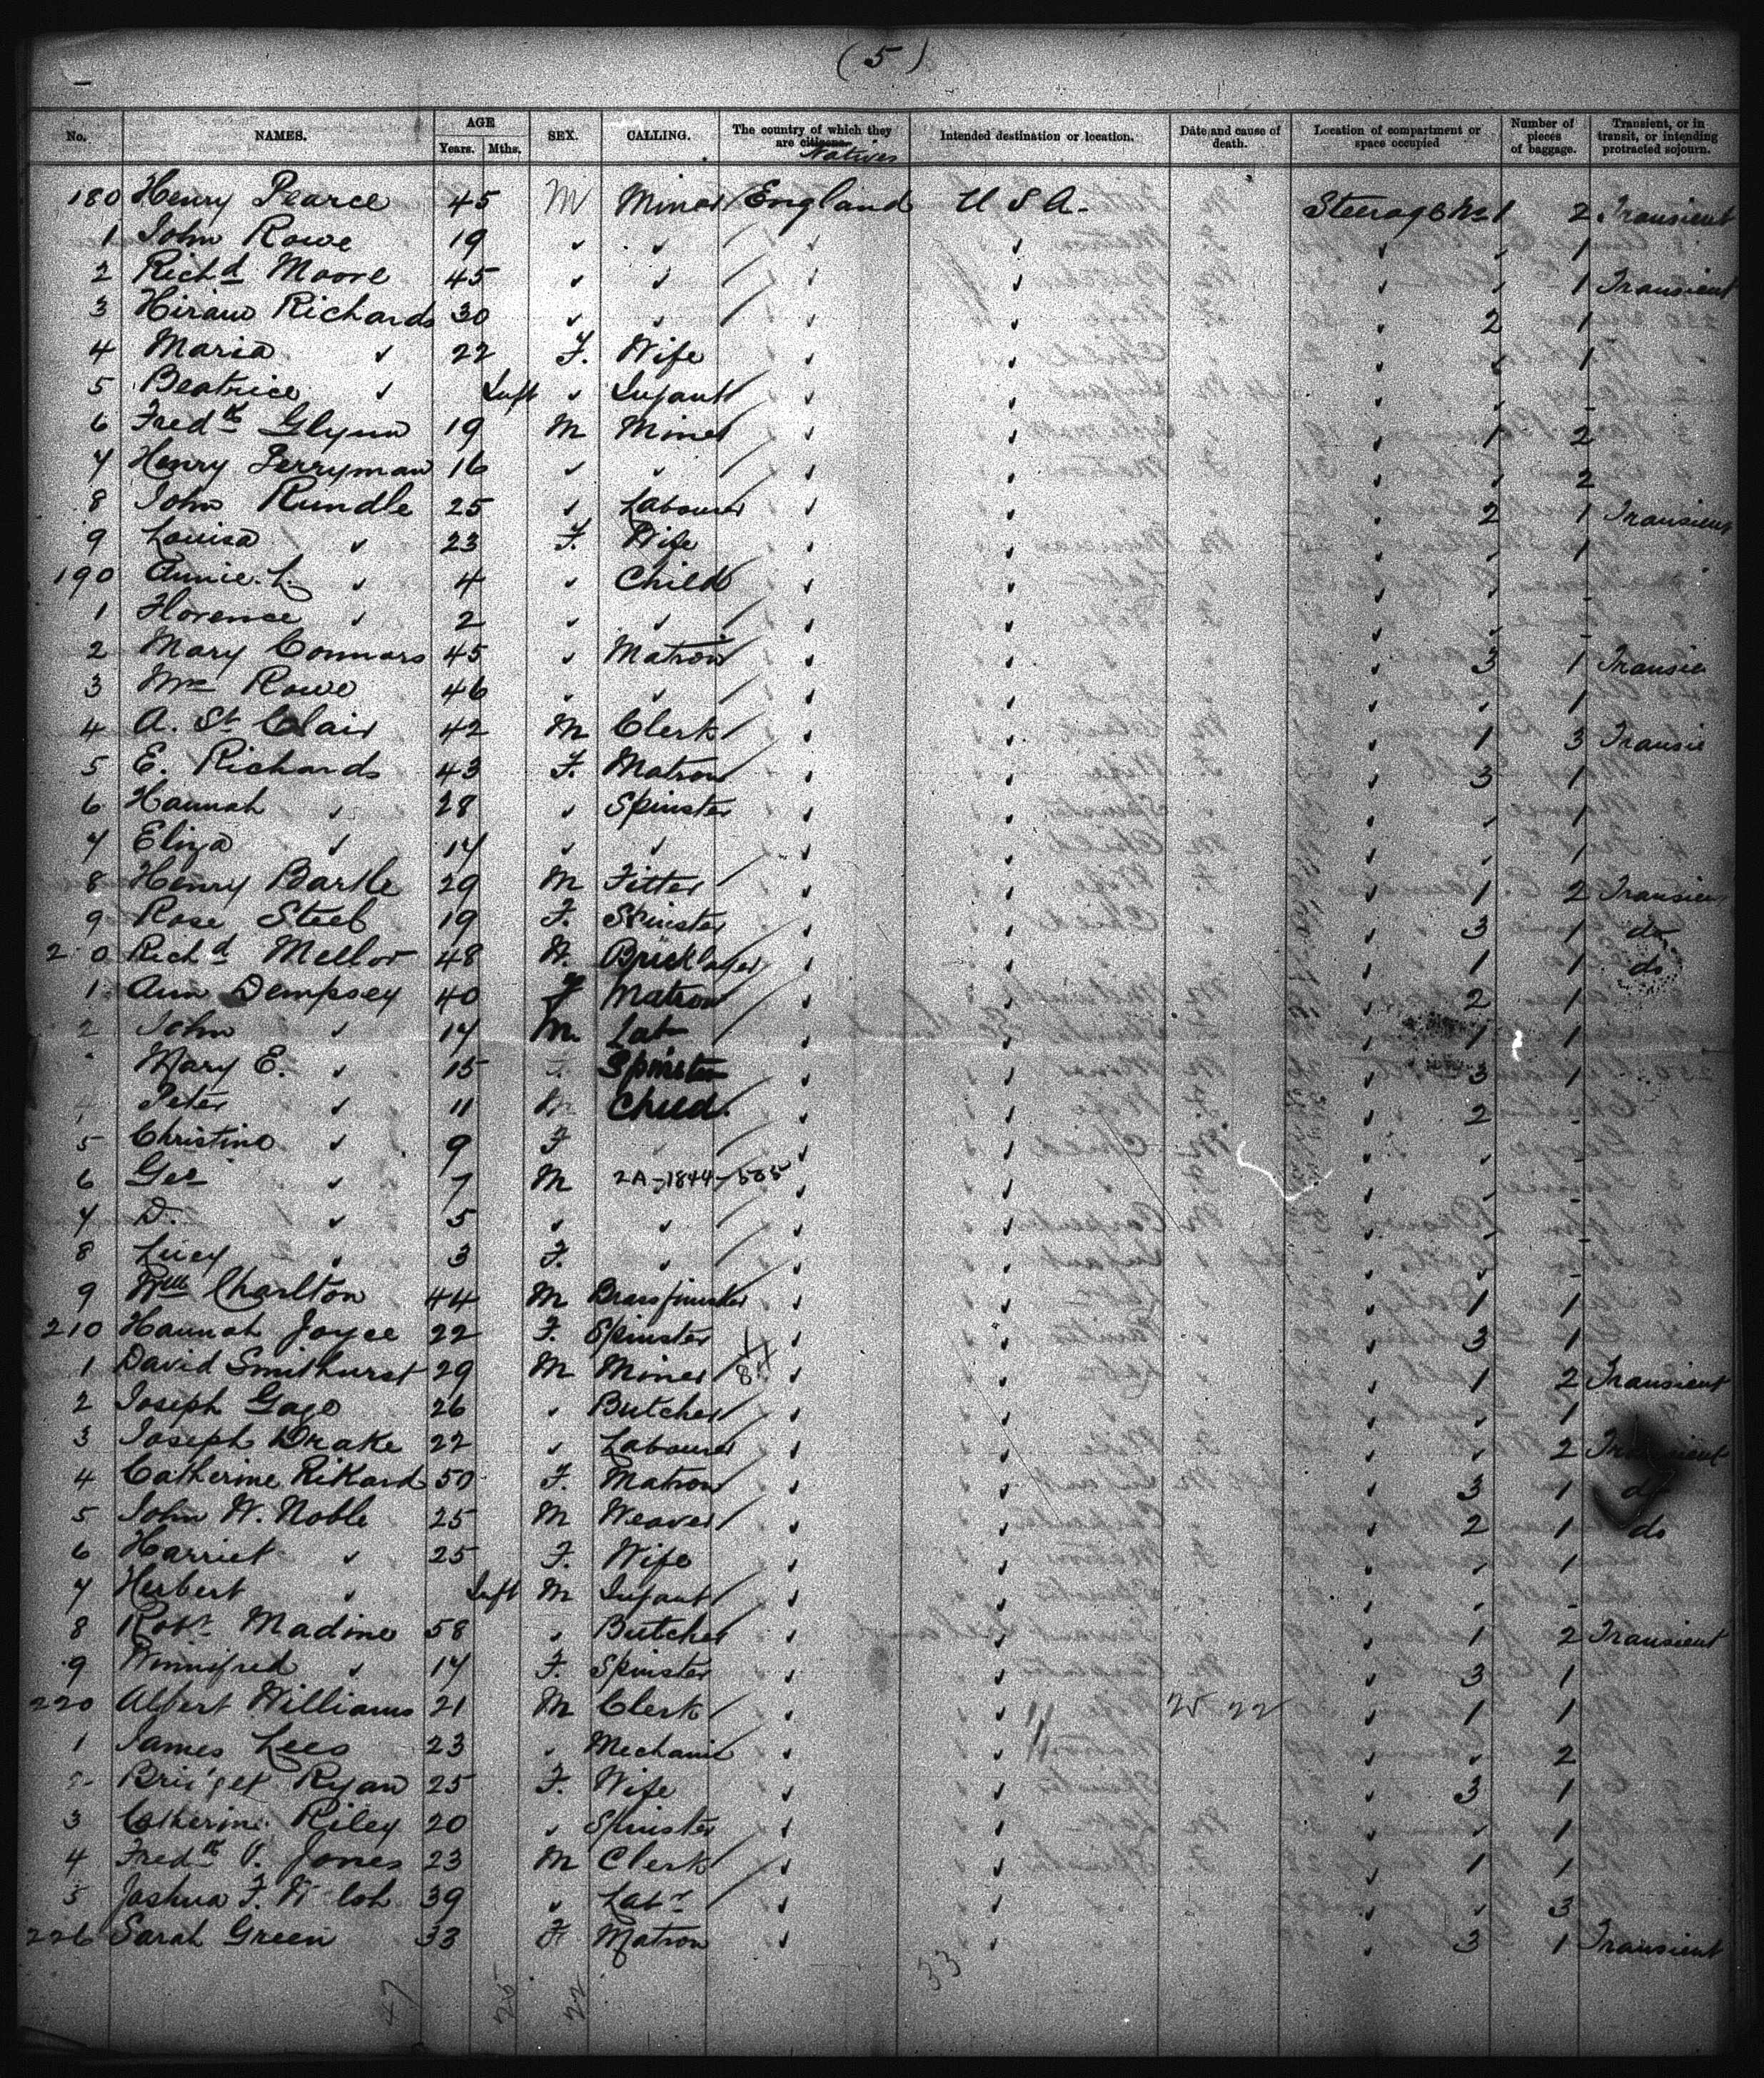 ( 5 )
No. NAMES. AGE Years. Mths. SEX. CALLING. The country of which they are citizens. Natives Intended destination or location. Date and cause of death. Location of compartment or space occupied Number of pieces of baggage. Transient, or in transit, or intending protracted sojourn.
180 Henry Pearce 45 M Miner England U S A. Steerage No 1 2 Transient
1 John Rowe 19 " " " " " " 1
2 Richd Moore 45 " " " " " " 1 Transient
3 Hiram Richards 30 " " " " " 2 1
4 Maria " 22 F. Wife " " " " 1
5 Beatrice " Inft " Infant " " " " -
6 Fredk Glynn 19 M Miner " " " 1 2
7 Henry Perryman 16 " " " " " " 2
8 John Rundle 25 " Labourer " " " 2 1 Transient
9 Louisa " 23 F. Wife " " " " 1
190 Annie. L. " 4 " Child " " " " -
1 Florence " 2 " " " " " " -
2 Mary Connors 45 " Matron " " " 3 1 Transie
3 Mrs Rowe 46 " " " " " " 1
4 A. St Clair 42 M Clerk " " " 1 3 Transie
5 E. Richards 43 F. Matron " " " 3 1
6 Hannah " 28 " Spinster " " " " 1
7 Eliza " 17 " " " " " " 1
8 Henry Bartle 29 M Fitter " " " 1 2 Transien
9 Rose Steel 19 F. Spinster " " " 3 1 do
2 0 Richd Mellor 48 M. Bricklayer " " " 1 1 do
1 Ann Dempsey 40 F Matron " " " 2 1
2 John " 17 M. Lab " " " 1 1
Mary E. " 15 Spinster " " " 3 1
4 Peter " 11 M Child. " " " 2 -
5 Christina " 9 F " " " " -
6 Geo " 7 M 2A-1844-505 " " " " -
7 D. " 5 " " " " " " -
8 Lucy " 3 F. " " " " " -
9 Wm Charlton 44 M Brassfinisher " " " 1 1
210 Hannah Joyce 22 F. Spinster " " " 3 1
1 David Smithurst 29 M Miner " " " 1 2 Transient
2 Joseph Gage 26 " Butcher " " " " 1
3 Joseph Drake 22 " Labourer " " " " 2 Transient
4 Catherine Rikard 50 F. Matron " " " 3 1 do
5 John W. Noble 25 M Weaver " " " 2 1 do
6 Harriet " 25 F. Wife " " " " 1
7 Herbert " Inft M Infant " " " " -
8 Robt Madine 58 " Butcher " " " 1 2 Transient
9 Winnifred " 17 F. Spinster " " " 3 1
220 Albert Williams 21 M Clerk " " 25 22 " 1 1
1 James Lees 23 " Mechanic " " " " 2
2 Bridget Ryan 25 F. Wife " " " 3 1
3 Catherine Riley 20 " Spinster " " " " 1
4 Fredk P. Jones 23 M Clerk " " " 1 1
5 Joshua F. 39 " Labr " " " " 3
226 Sarah Green 33 F Matron " " " 3 1 Transient
47 25 22 33